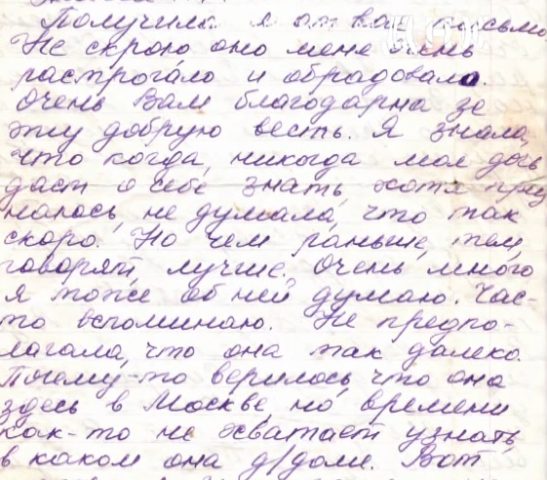 Получила я от вас письмо
Не скрою оно меня очень
растрогало и обрадовало.
Очень Вам благодарна за
эту добрую весть. Я знала,
что когда, никогда моя дочь
даст о себе знать, хотя приз
налось, не думала, что так
скоро. Но чем раньше, тем,
говорят, лучше. Очень много
я тоже об ней думаю. Час-
то вспоминаю. Не предпо-
лагала, что она так далеко.
Почему-то верилось, что она
здесь в Москве, но времени
как-то не хватает узнать,
в каком она д/доме. Вот